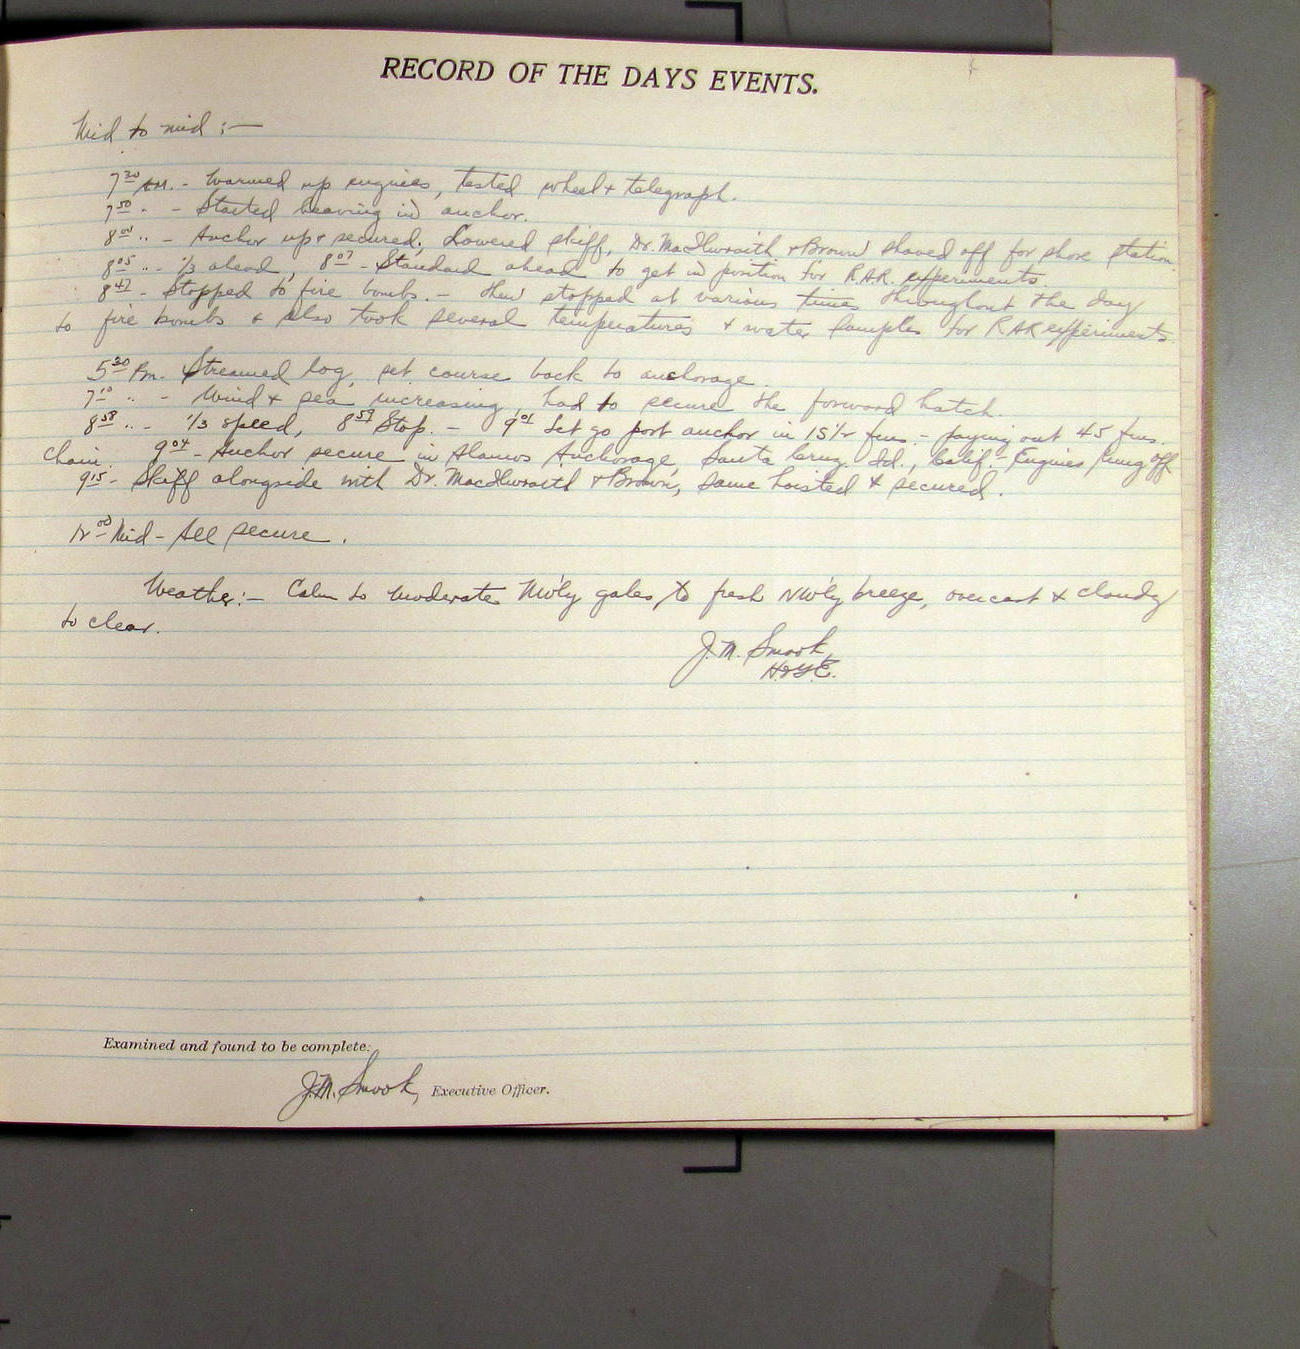 RECORD OF THE DAYS EVENTS.
Mid to mid :—
7 30 AM. - Warmed up engines, tested wheel & telegraph.
7 50 " - Started heaving in anchor.
8 00 " - Anchor up & secured. Lowered skiff, Dr. MacIlwraith & Brown shoved off for shore station.
8 05 " - 1/3 ahead, 8 07 - Standard ahead to get in position for R.A.R. experiments.
8 47 - Stopped to fire bombs. - then stopped at various times throughout the day
to fire bombs & also took several temperatures & water samples for R.A.R experiments.
5 30 Pm. Streamed log, set course back to anchorage.
7 10 " - Wind & sea increasing, had to secure the forward hatch.
8 58 " - 1/3 speed, 8 59 Stop. - 9 01 Let go port anchor in 15 1/2 fms - paying out 45 fms.
chain. 9 04 - Anchor secure in Alamos Anchorage, Santa Cruz Id., Calif. - Engines rung off
9 15 - Skiff alongside with Dr. MacIlwraith & Brown, same hoisted & secured.
12 00 Mid - All secure.
Weather:- Calm to moderate NW'ly gales to fresh NW'ly breeze, overcast & cloudy
to clear.
J. M. Smook,
H. & G. E.
Examined and found to be complete:
J. M. Smook, Executive Officer.